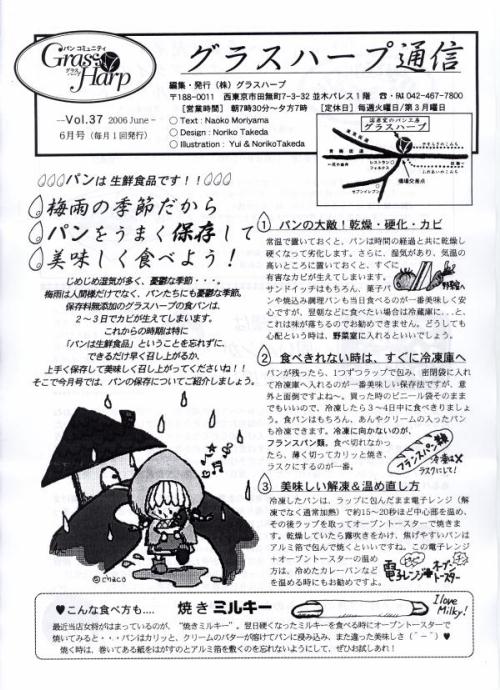 パン コミュニティ
Grass
グラス ハープ
Harp
グラスハープ通信
編集・発行（株）グラスハープ
〒188-0011 西東京市田無町7-3-32 並木パレス1階 ☎・FAX 042-467-7800
［営業時間］ 朝7時30分～夕方7時 ［定休日］毎週火曜日/第3月曜日
--Vol.37 2006 June-
6月号（毎月1回発行）
○Text : Naoko Moriyama
○Design : Noriko Takeda
○Illustration : Yui & NorikoTakeda
グラスハープ
レストラン
セブンイレブン
橋場交差点
パンは 生鮮食品です！！
梅雨の季節だから
パンをうまく保存して
美味しく食べよう！
じめじめ湿気が多く、憂鬱な季節・・・。
梅雨は人間様だけでなく、パンたちにも憂鬱な季節。
保存料無添加のグラスハープの食パンは、
2～3日でカビが生えてしまいます。
これからの時期は特に
「パンは生鮮食品」ということを忘れずに、
できるだけ早く召し上がるか、
上手く保存して美味しく召し上がってくださいね！！
そこで今月号では、パンの保存についてご紹介しましょう。
©chaco
1 パンの大敵！乾燥・硬化・カビ
常温で置いておくと、パンは時間の経過と共に乾燥し
硬くなって劣化します。さらに、湿気があり、気温の
高いところに置いておくと、すぐに
有害なカビが生えてしまいます。
サンドイッチはもちろん、菓子パ
ンや焼込み調理パンも当日食べるのが一番美味しく安
心ですが、翌朝などに食べたい場合は冷蔵庫に…と、
これは味が落ちるのでお勧めできません。どうしても
心配という時は、野菜室に入れるといいでしょう。
野菜室へ
2 食べきれない時は、すぐに冷凍庫へ
パンが残ったら、1つずつラップで包み、密閉袋に入れ
て冷凍庫へ入れるのが一番美味しい保存法ですが、意
外と面倒ですよね～。買った時のビニール袋そのまま
でもいいので、冷凍したら3～4日中に食べきりましょ
う。食パンはもちろん、あんやクリームの入ったパン
も冷凍できます。冷凍に向かないのが、
フランスパン類。食べ切れなかっ
たら、薄く切ってカリッと焼き、
ラスクにするのが一番。
フランスパン類
冷凍は×
ラスクにして！
3 美味しい解凍＆温め直し方
冷凍したパンは、ラップに包んだまま電子レンジ（解
凍でなく通常加熱）で約15～20秒ほど中心部を温め、
その後ラップを取ってオーブントースターで焼きま
す。乾燥していたら霧吹きをかけ、焦げやすいパンは
アルミ箔で包んで焼くといいですね。この電子レンジ
+オーブントースターの温め
方は、冷めたカレーパンなど
を温める時にもお勧めですよ。
電子レンジ+オーブントースター
♥こんな食べ方も.... 焼きミルキー
I love Milky!
最近当店女将がはまっているのが、“焼きミルキー”。翌日硬くなったミルキーを食べる時にオーブントースターで
焼いてみると・・・パンはカリッと、クリームのバターが溶けてパンに浸み込み、また違った美味しさ（＾－＾）♥
焼く時は、巻いてある紙をはがすのとアルミ箔を敷くのを忘れないようにして、ぜひお試しあれ！